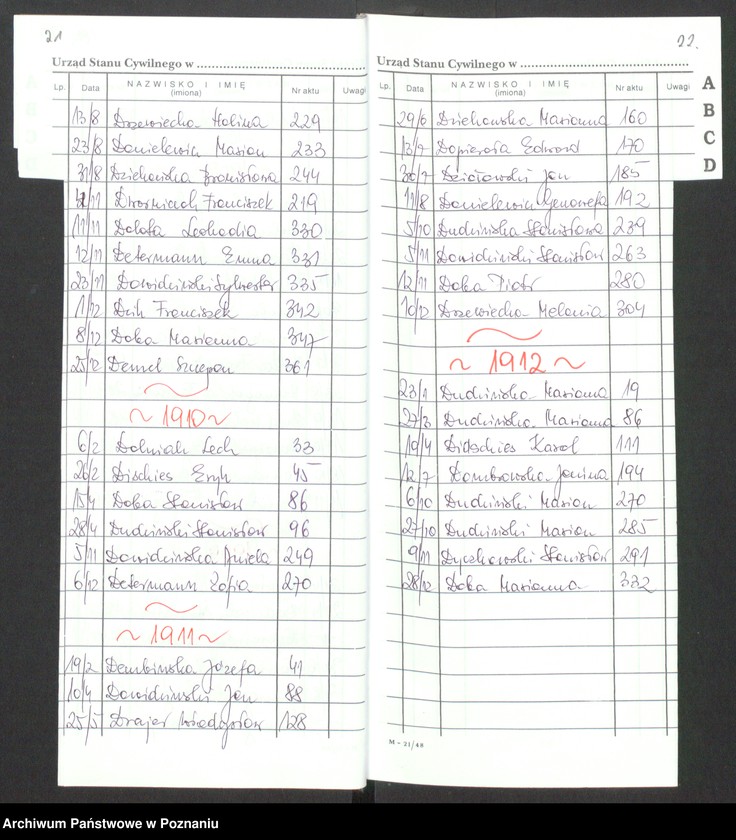 21
Urząd Stanu Cywilnego w
Lp. Data NAZWISKO I IMIĘ (imiona) Nr aktu Uwagi
13/8 Drzewiecka Halina 229
23/8 Danielewicz Marian 233
31/8 Dziekowska Bronisława 244
Franciszek 219
11/11 Dolata Leokadia 330
12/11 Determann Emma 331
23/11 Dawidziński Sylwester 335
1/12 Dzik Franciszek 342
8/12 Doka Marianna 347
25/12 Demel Szczepan 361
~ 1910 ~
6/2 Dolniak Lech 33
26/2 Dischies Eryk 45
15/4 Doka Stanisław 86
28/4 Dudziński Stanisław 96
5/11 Dawidzińska Aniela 249
6/12 Determann Zofia 270
~ 1911 ~
19/2 Dembińska Józefa 41
10/4 Dawidziński Jan 88
25/5 Drajer Władysław 128
22.
Urząd Stanu Cywilnego w
Lp. Data NAZWISKO I IMIĘ (imiona) Nr aktu Uwagi
A
B
C
D
29/6 Dziekowska Marianna 160
13/7 Dopierała Edward 170
30/7 Działowski Jan 185
11/8 Danielewicz Genowefa 192
5/10 Dudzińska Stanisława 239
5/11 Dawidziński Stanisław 263
12/11 Doka Piotr 280
10/12 Drzewiecka Melania 304
~ 1912 ~
23/1 Dudzińska Marianna 19
27/3 Dudzińska Marianna 86
19/4 Ditschies Karol 111
12/7 Dombrowska Janina 194
6/10 Dudziński Marian 270
27/10 Dudziński Marian 285
9/11 Dyczkowski Stanisław 291
28/12 Doka Marianna 332
M - 21/48
Archiwum Państwowe w Poznaniu